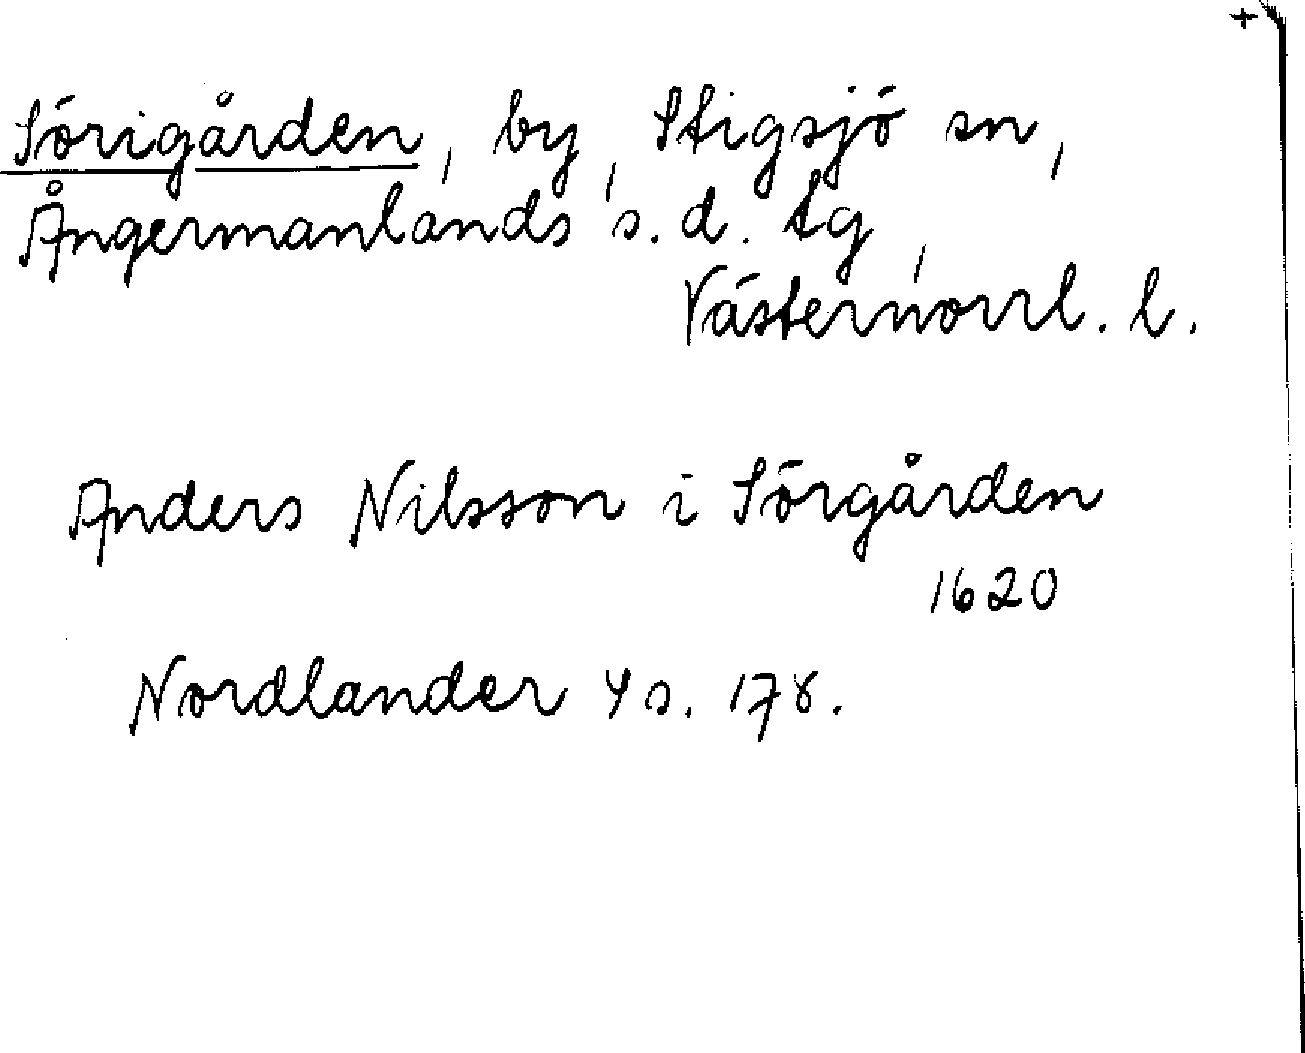 +
Sörigården, by, Stigsjö sn,
Ångermanlands s. d. tg,
Västernorrl. l.
Anders Nilsson i Sörgården
1620
Nordlander 4 s. 178.